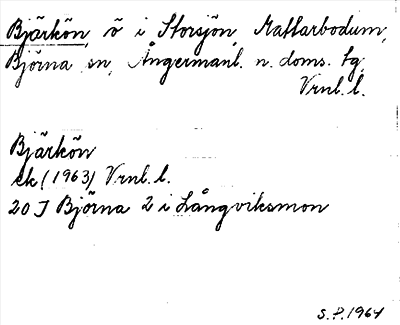 Bjärkön, ö i Storsjön, Mattarbodum,
Björna sn, Ångermanl. n. doms. tg.
Vrnl. l.
Bjärkön
ek (1963) Vrnl. l.
20 J Björna 2 i Långviksmon
S. P. 1964